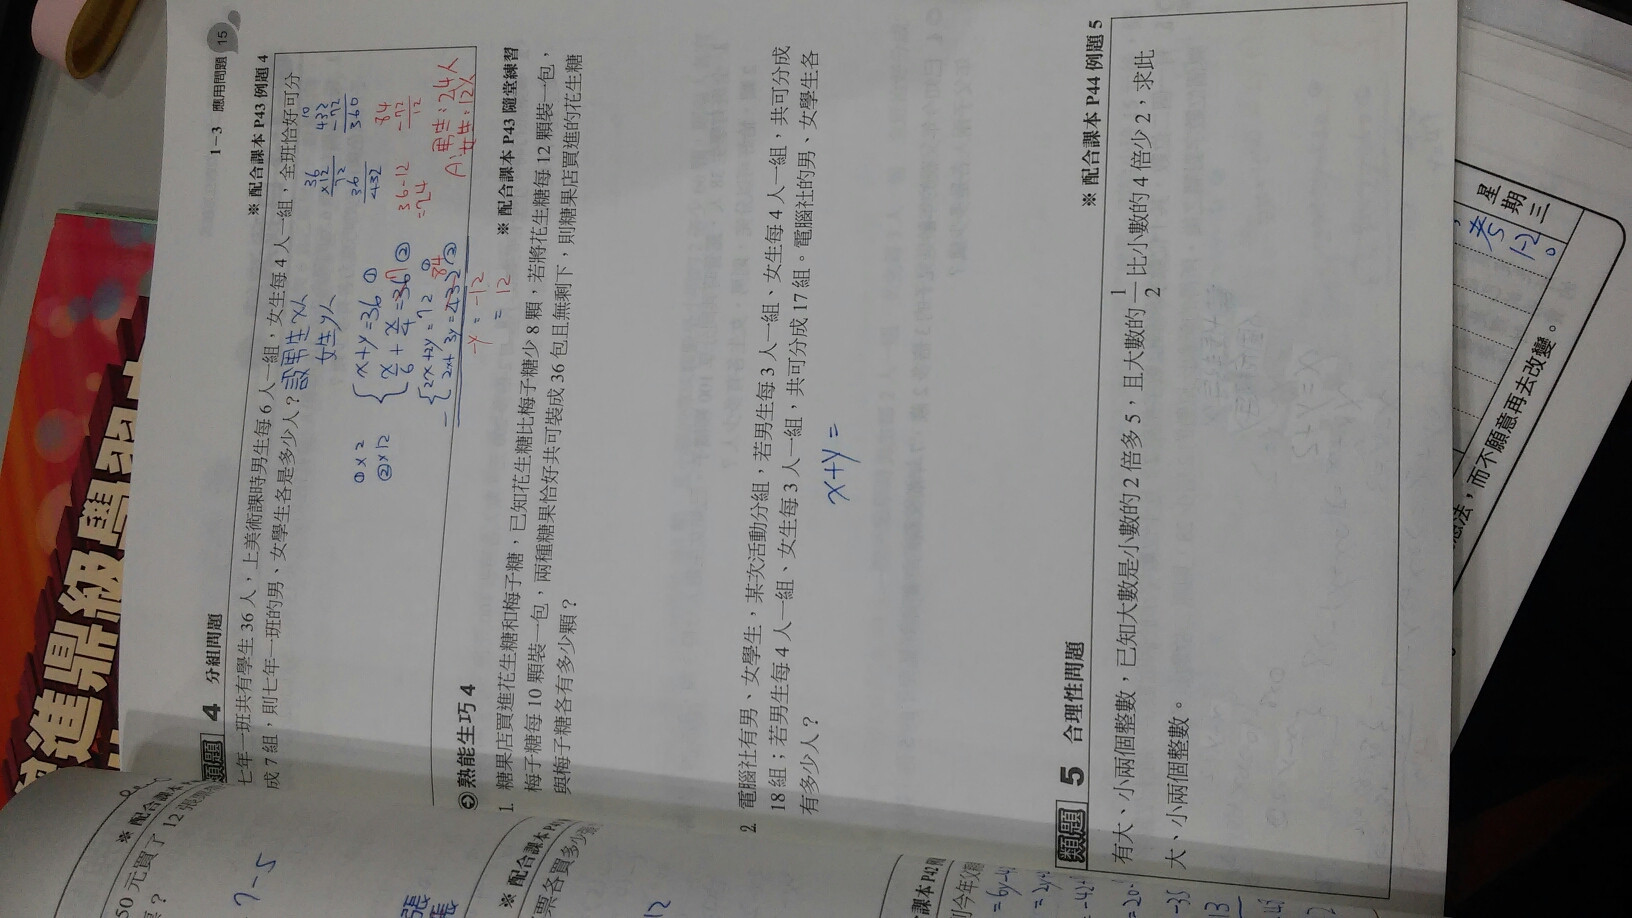 1-3 應用問題 15
類題 4 分組問題
※配合課本 P43 例題 4
七年一班共有學生 36 人，上美術課時男生每 6 人一組，女生每 4 人一組，全班恰好可分
成 7 組，則七年一班的男、女學生各是多少人？
設男生x人
女生y人
x+y=36 ①
②
①×2
②×12
2x+2y=72
36
×12
72
36
432
432
-72
360
36-12
=24
84
-72
12
A:男生:24人
女生:12人
熟能生巧 4
※配合課本 P43 隨堂練習
1. 糖果店買進花生糖和梅子糖，已知花生糖比梅子糖少 8 顆，若將花生糖每 12 顆裝一包，
梅子糖每 10 顆裝一包，兩種糖果恰好共可裝成 36 包且無剩下，則糖果店買進的花生糖
與梅子糖各有多少顆？
2. 電腦社有男、女學生，某次活動分組，若男生每 3 人一組、女生每 4 人一組，共可分成
18 組；若男生每 4 人一組、女生每 3 人一組，共可分成 17 組。電腦社的男、女學生各
有多少人？
x+y=
類題 5 合理性問題
※配合課本 P44 例題 5
有大、小兩個整數，已知大數是小數的 2 倍多 5，且大數的 1/2 比小數的 4 倍少 2，求此
大、小兩個整數。
※配合課本
50 元買了 12 張
7-5
※配合課本 P41
票各買多少
12
課本 P42
今年父
進鼎級學
星期三
而不願意再去改變。